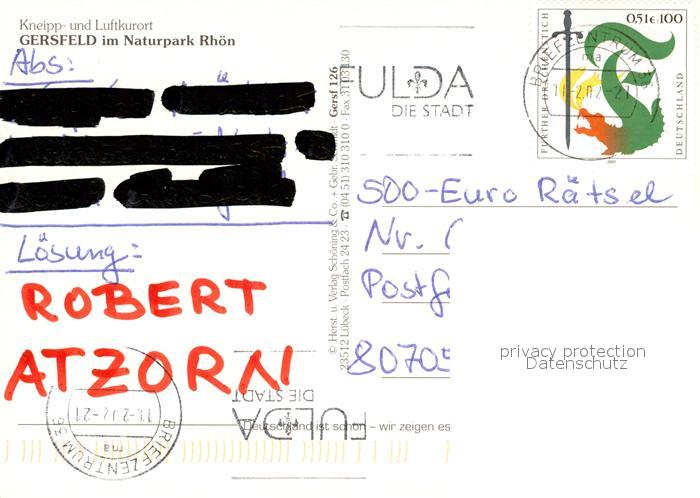 Kneipp- und Luftkurort
GERSFELD im Naturpark Rhön
Abs:
Lösung:
ROBERT
ATZORN
© Herst. u. Verlag Schöning & Co. + Gebr. Schmidt · Gersf 126
23512 Lübeck · Postfach 24 23 · ☎ (04 51) 310 310 0 · Fax 310 31 30
FULDA
DIE STADT
FURTHER DRACHENSTICH
0,51€/100
DEUTSCHLAND
2001
BRIEFZENTRUM 36
ma
11-2.02-21
500-Euro Rätsel
Nr.
Postf
80705
privacy protection
Datenschutz
FULDA
DIE STADT
BRIEFZENTRUM 36
ma
11-2.02-21
Deutschland ist schön – wir zeigen es